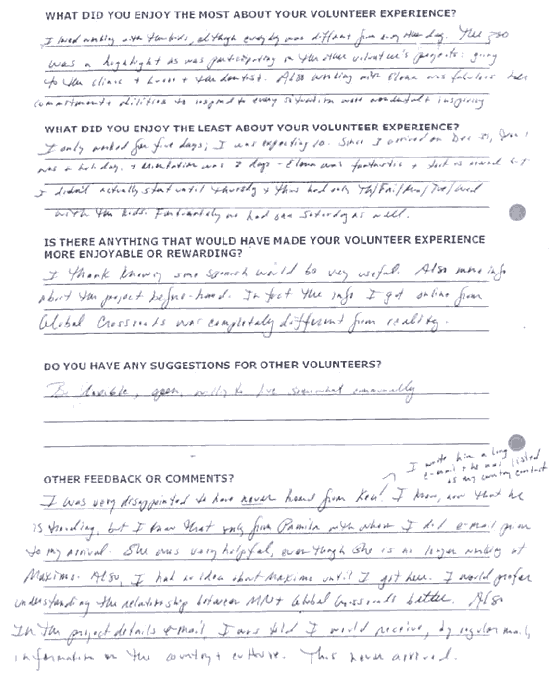 WHAT DID YOU ENJOY THE MOST ABOUT YOUR VOLUNTEER EXPERIENCE?
I loved working with the kids, although every day was different from every other day. The zoo
was a highlight as was participating in the other volunteer's projects: going
to the clinic + house + the dentist. Also working with Elena was fabulous her
commitment + abilities to respond to every situation were wonderful + inspiring
WHAT DID YOU ENJOY THE LEAST ABOUT YOUR VOLUNTEER EXPERIENCE?
I only worked for five days; I was expecting 10. Since I arrived on Dec 31, Jan 1
was a holiday, + orientation was 2 days - Elena was fantastic +
I didn't actually start until Thursday + thus had only Th/Fri/Mon/Tue/Wed
with the kids. Fortunately we had one Saturday as well.
IS THERE ANYTHING THAT WOULD HAVE MADE YOUR VOLUNTEER EXPERIENCE
MORE ENJOYABLE OR REWARDING?
I think knowing some Spanish would be very useful. Also more info
about the project before-hand. In fact the info I got online from
Global Crossroads was completely different from reality.
DO YOU HAVE ANY SUGGESTIONS FOR OTHER VOLUNTEERS?
Be flexible, open, willing to live somewhat communally
I wrote him a long
e-mail + he was listed
as my country contact
OTHER FEEDBACK OR COMMENTS?
I was very disappointed to have never heard from Ken! I know, now that he
is traveling, but I know that only from Pamela with whom I did e-mail prior
to my arrival. She was very helpful, even though she is no longer working at
Maximo. Also, I had no idea about Maximo until I got here. I would prefer
understanding the relationship between MN + Global Crossroads better. Also
In the project details e-mail, I was told I would receive, by regular mail,
information on the country + culture. This never arrived.